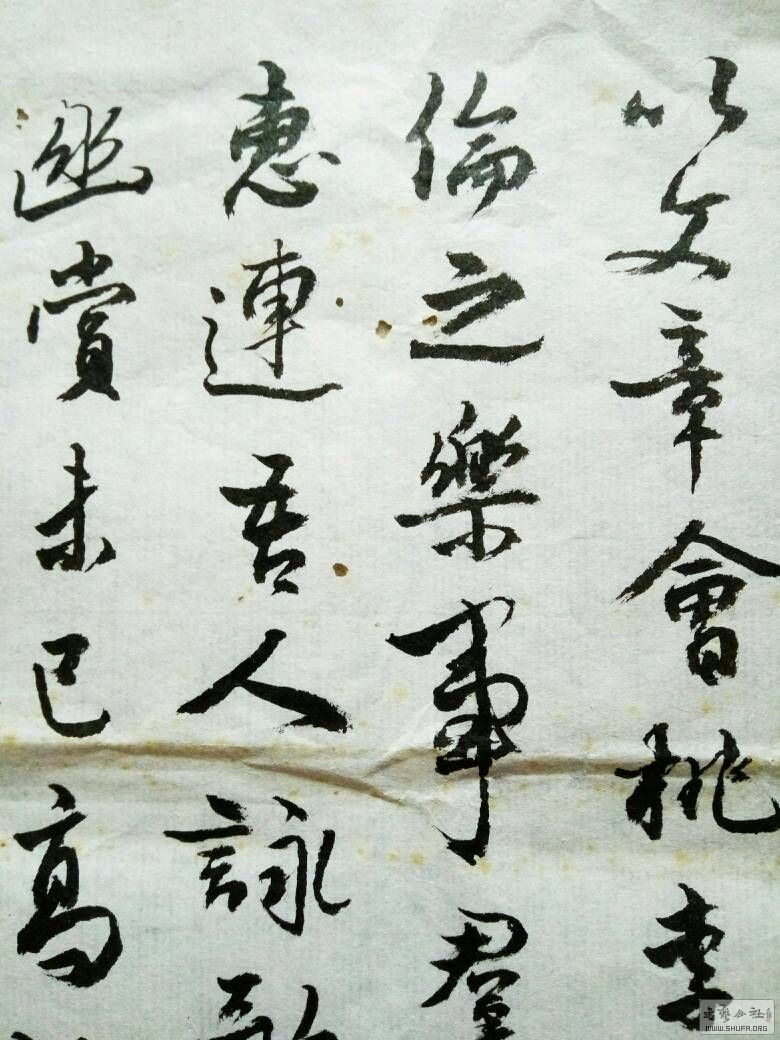 以文章會桃李
倫之樂事群
惠連吾人詠歌
幽賞未已高
書藝公社
WWW.SHUFA.ORG